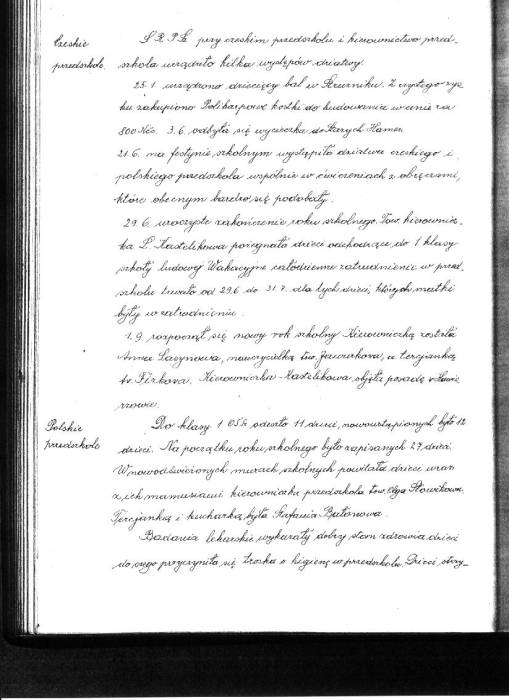 Czeskie
przedszkole.
S.R.P.Sz. przy czeskim przedszkolu i kierownictwo przed-
szkola urządziło kilka występów dziatwy.
25.1. urządzono dziecięcy bal w Rzurniku. Z czystego zys-
ku zakupiono Polikarpowe kostki do budowania w cenie za
800 Kčs. 3.6. odbyła się wycieczka do Starych Hamer.
21.6. na festynie szkolnym wystąpiła dziatwa czeskiego i
polskiego przedszkola wspólnie w ćwiczeniach z obręczami,
które obecnym bardzo się podobały.
29.6. uroczyste zakończenie roku szkolnego. Tow. kierownicz-
ka L. Kastelikowa pożegnała dzieci odchodzące do 1 klasy
szkoły ludowej. Wakacyjne całodzienne zatrudnienie w przed-
szkolu trwało od 29.6. do 31.7. dla tych dzieci, których matki
były w zatrudnieniu.
1.9. rozpoczął się nowy rok szkolny. Kierowniczką została
Anna Sasynowa, nauczycielką tow. Jaworkova, a tercjanką
tow. Firkova. Kierowniczka Kastelikowa objęła posadę w Hawie-
rzowie.
Polskie
przedszkole
Do klasy 1 OSŁ odeszło 11 dzieci, nowowstąpionych było 12
dzieci. Na początku roku szkolnego było zapisanych 27 dzieci.
W nowodświeżonych murach szkolnych powitała dzieci wraz
z ich mamusiami kierowniczka przedszkola tow. Olga Słowikowa.
Tercjanką i kucharką była Stefania Butonowa.
Badania lekarskie wykazały dobry stan zdrowia dzieci
do czego przyczyniła się troska o higienę w przedszkolu. Dzieci otrzy-